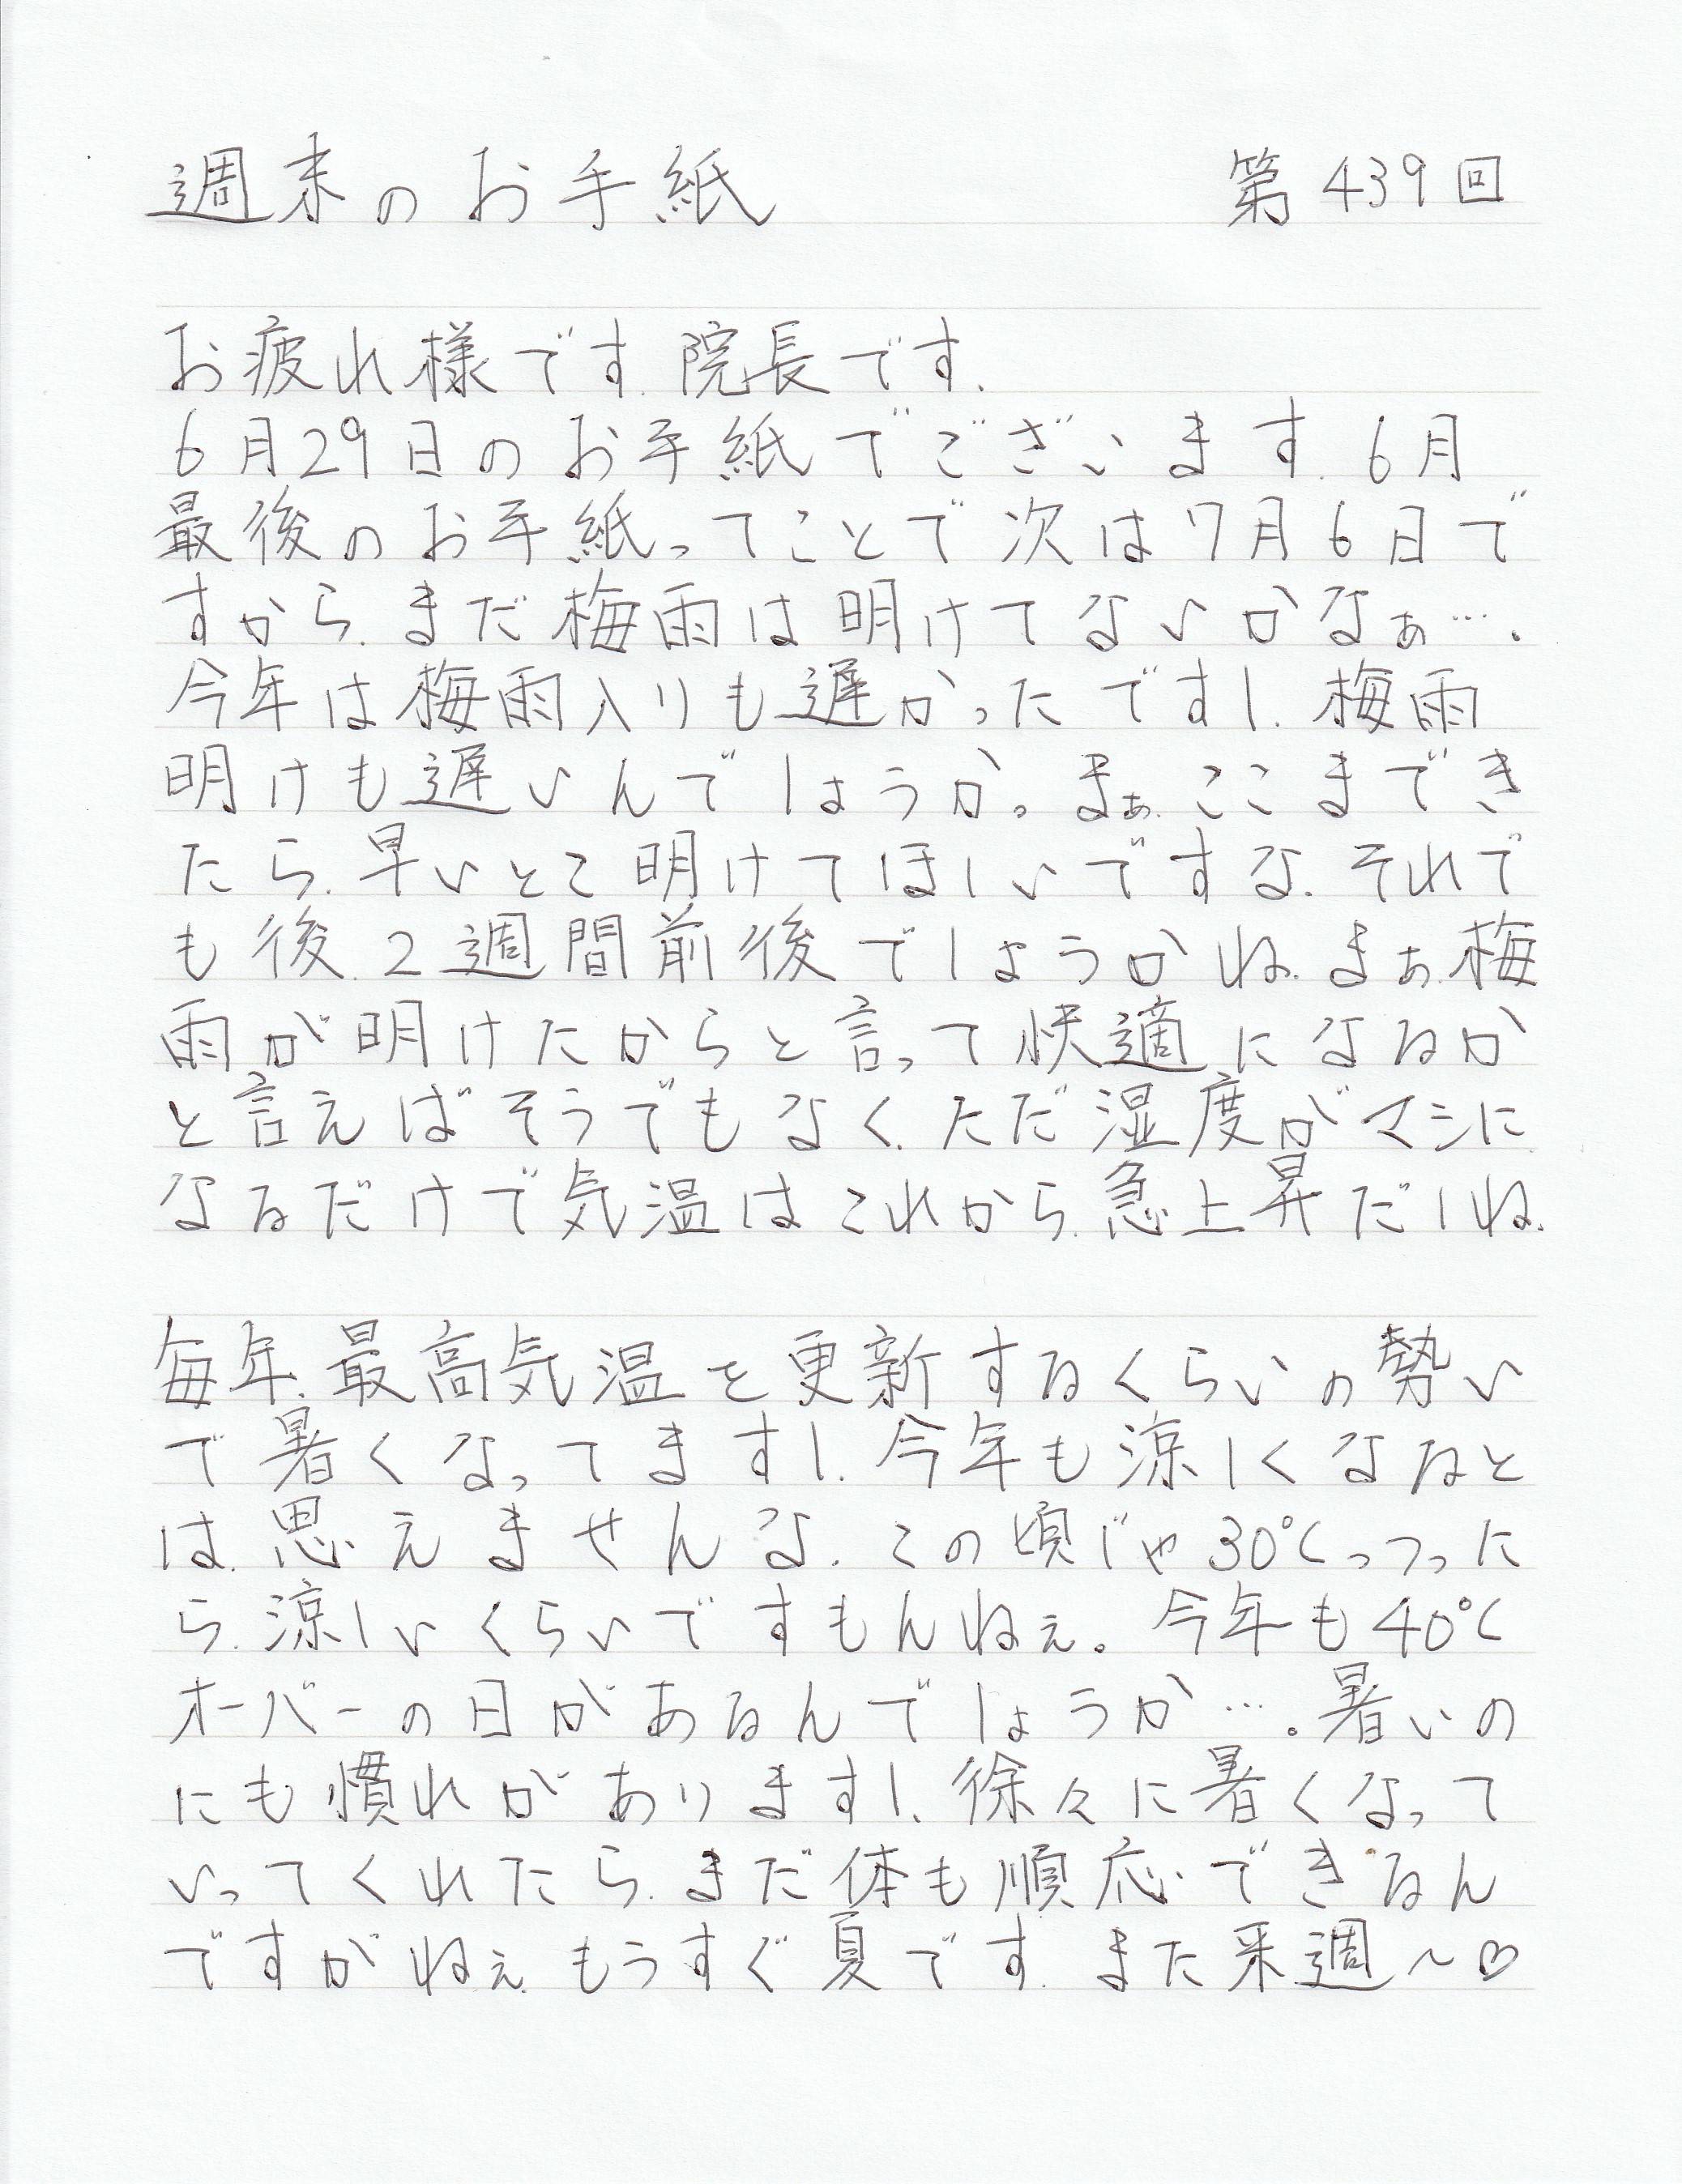 週末のお手紙 第439回
お疲れ様です.院長です.
6月29日のお手紙でございます.6月
最後のお手紙ってことで次は7月6日で
すから.まだ梅雨は明けてないかなぁ….
今年は梅雨入りも遅かったですし.梅雨
明けも遅いんでしょうか。まぁ.ここまでき
たら.早いとこ明けてほしいですな.それで
も後.2週間前後でしょうかね.まぁ.梅
雨が明けたからと言って快適になるか
と言えばそうでもなく.ただ湿度がマシに
なるだけで気温はこれから.急上昇だしね.
毎年.最高気温を更新するくらいの勢い
で暑くなってますし.今年も涼しくなると
は.思えませんな.この頃じゃ30℃っつった
ら.涼しいくらいですもんねぇ。今年も40℃
オーバーの日があるんでしょうか…。暑いの
にも慣れがありますし.徐々に暑くなって
いってくれたら.まだ体も順応できるん
ですがねぇ.もうすぐ夏です.また来週〜♡